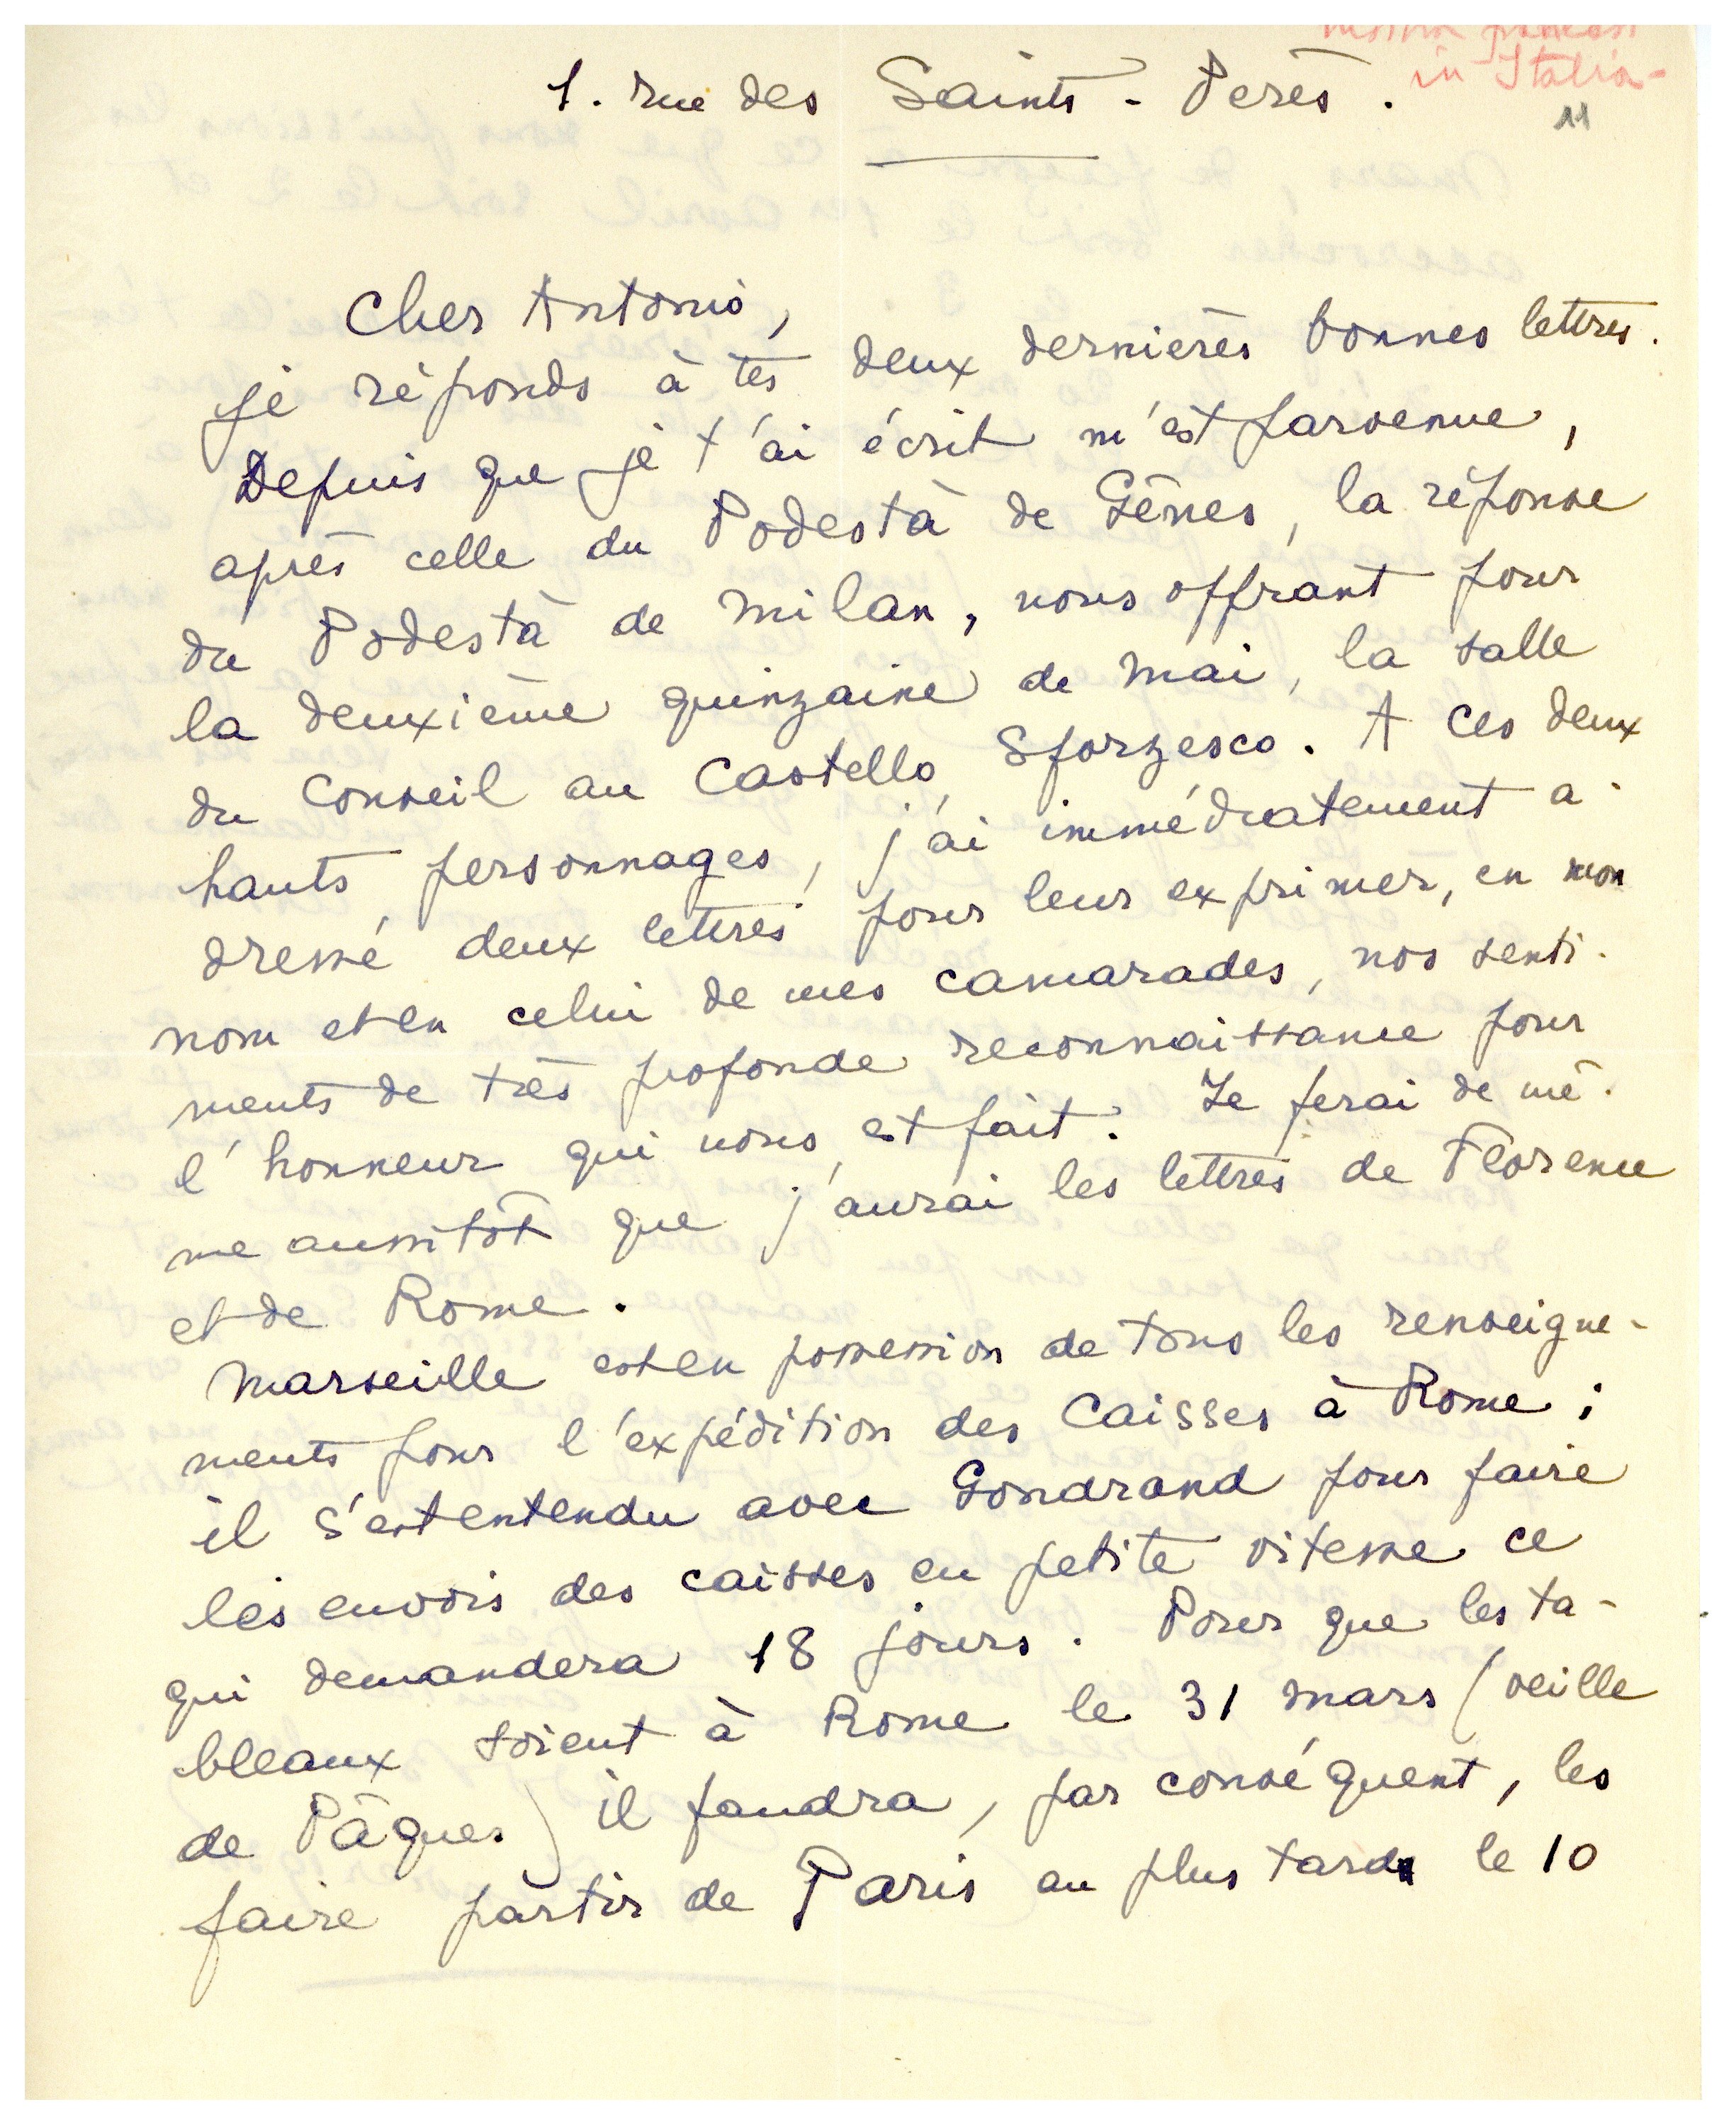 in Italia-
1. rue des Saints - Pères.
11
Cher Antonio,
je réponds à tes deux dernières bonnes lettres.
Depuis que je t'ai écrit m'est parvenue,
après celle du Podestà de Gênes, la réponse
du Podestà de Milan, nous offrant pour
la deuxième quinzaine de Mai, la salle
du Conseil au Castello Sforzesco. A ces deux
hauts personnages, j'ai immédiatement a-
dressé deux lettres pour leur exprimer, en mon
nom et en celui de mes camarades, nos senti-
ments de très profonde reconnaissance pour
l'honneur qui nous est fait. Je ferai de mê-
me aussitôt que j'aurai les lettres de Florence
et de Rome.
Marseille est en possession de tous les renseigne-
ments pour l'expédition des Caisses à Rome;
il s'est entendu avec Gondrand pour faire
les envois des caisses en petite vitesse ce
qui demandera 18 jours. Pour que les ta-
bleaux soient à Rome le 31 mars (veille
de Pâques) il faudra, par conséquent, les
faire partir de Paris au plus tard le 10